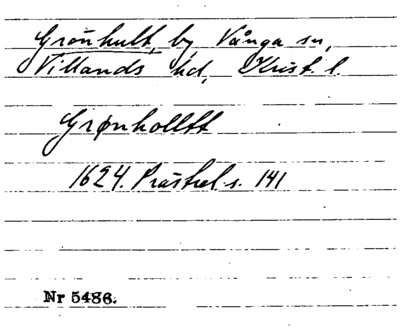 Grönhult, by, Vånga sn,
Villands hd, Krist. l.
Grønholltt
1624. Prästrel s. 141
Nr 5486.